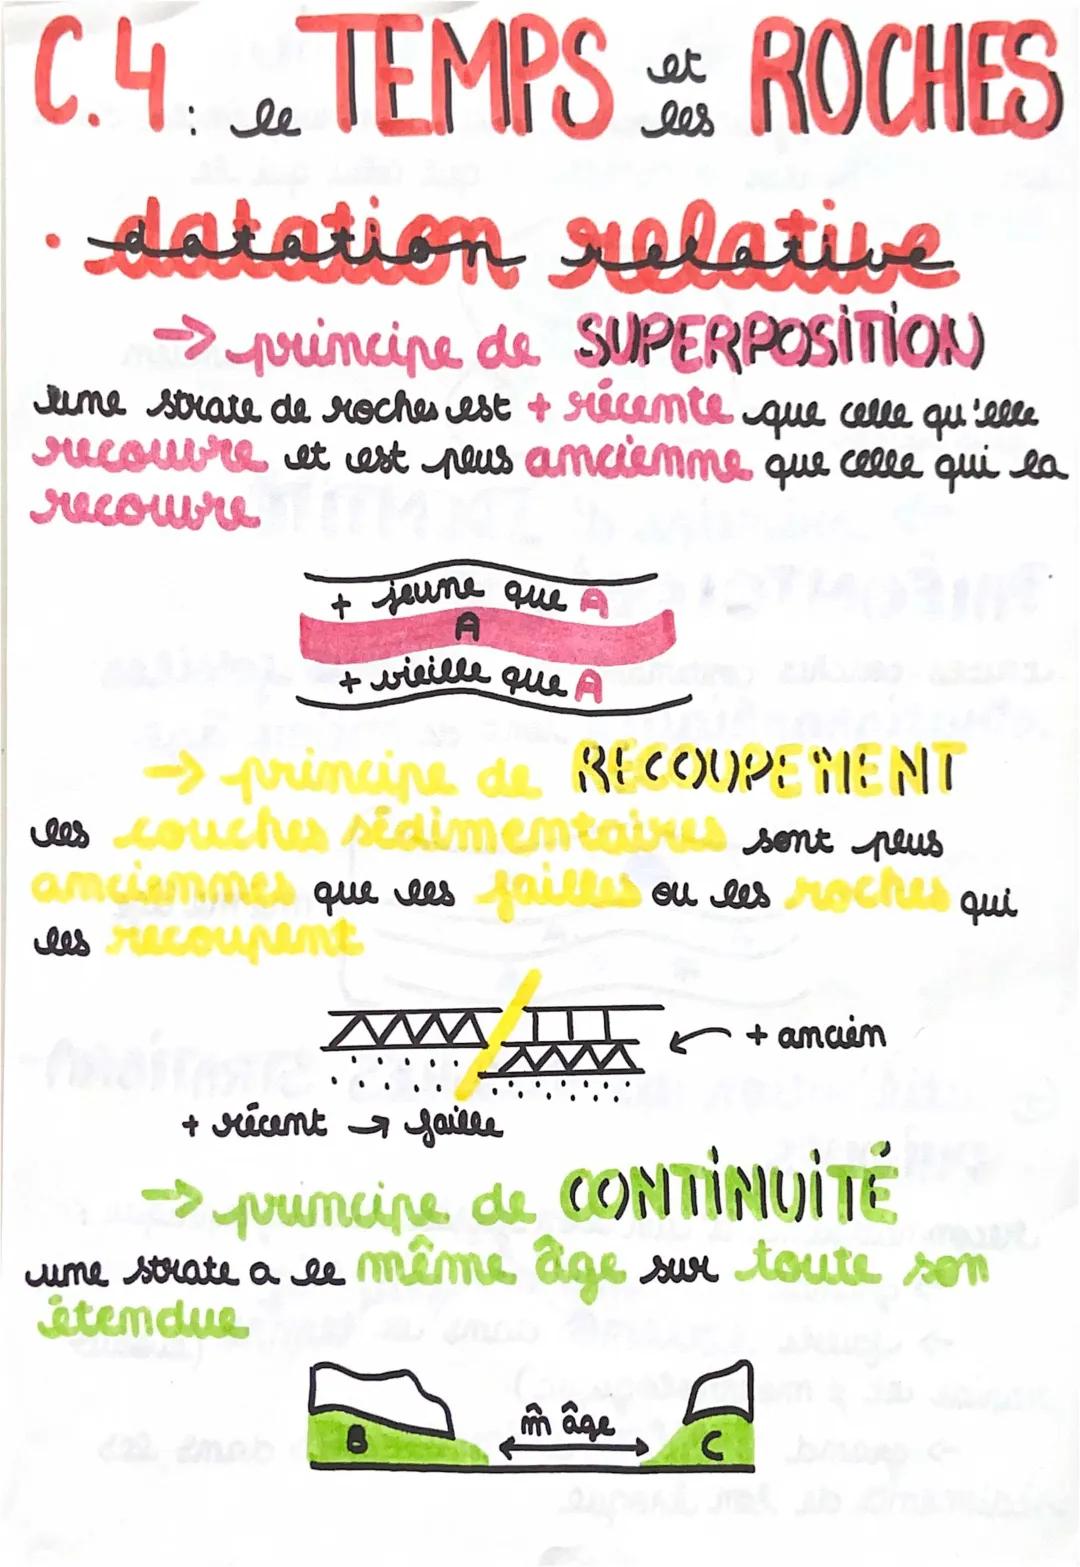 C.4 : le TEMPS et les ROCHES
• datation relative
→ principe de SUPERPOSITION
une strate de roches est + récente que celle qu'elle
recouvre et est plus ancienne que celle qui la
recouvre
+ jeune que A
A
+ vieille que A
→ principe de RECOUPEMENT
les couches sédimentaires sont plus
anciennes que les failles ou les roches qui
les recoupent
+ ancien
+ récent → faille
→ principe de CONTINUITÉ
une strate a le même âge sur toute son
étendue
B m̂ âge C